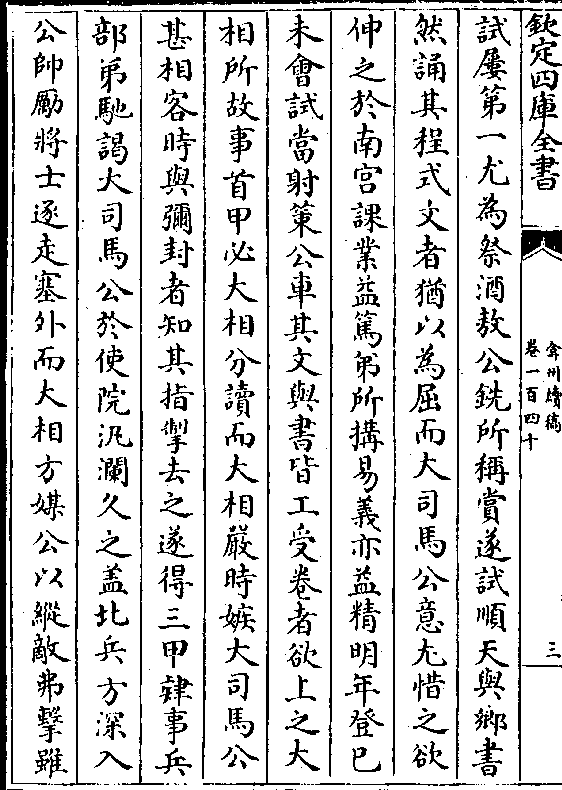 欽定四庫全書
弇州續稿
卷一百四十
三
試屢第一尤為祭酒敖公銑所稱賞遂試順天與鄉書
然誦其程式文者猶以為屈而大司馬公意尤惜之欲
伸之於南宫課業益篤弟所搆易義亦益精明年登已
未會試當射策公車其文與書皆工受卷者欲上之大
相所故事首甲必大相分讀而大相嚴時嫉大司馬公
甚相客時與彌封者知其指掣去之遂得三甲肄事兵
部弟馳謁大司馬公於使院汎瀾久之盖北兵方深入
公帥勵將士逐走塞外而大相方媒公以縱敵弗擊雖